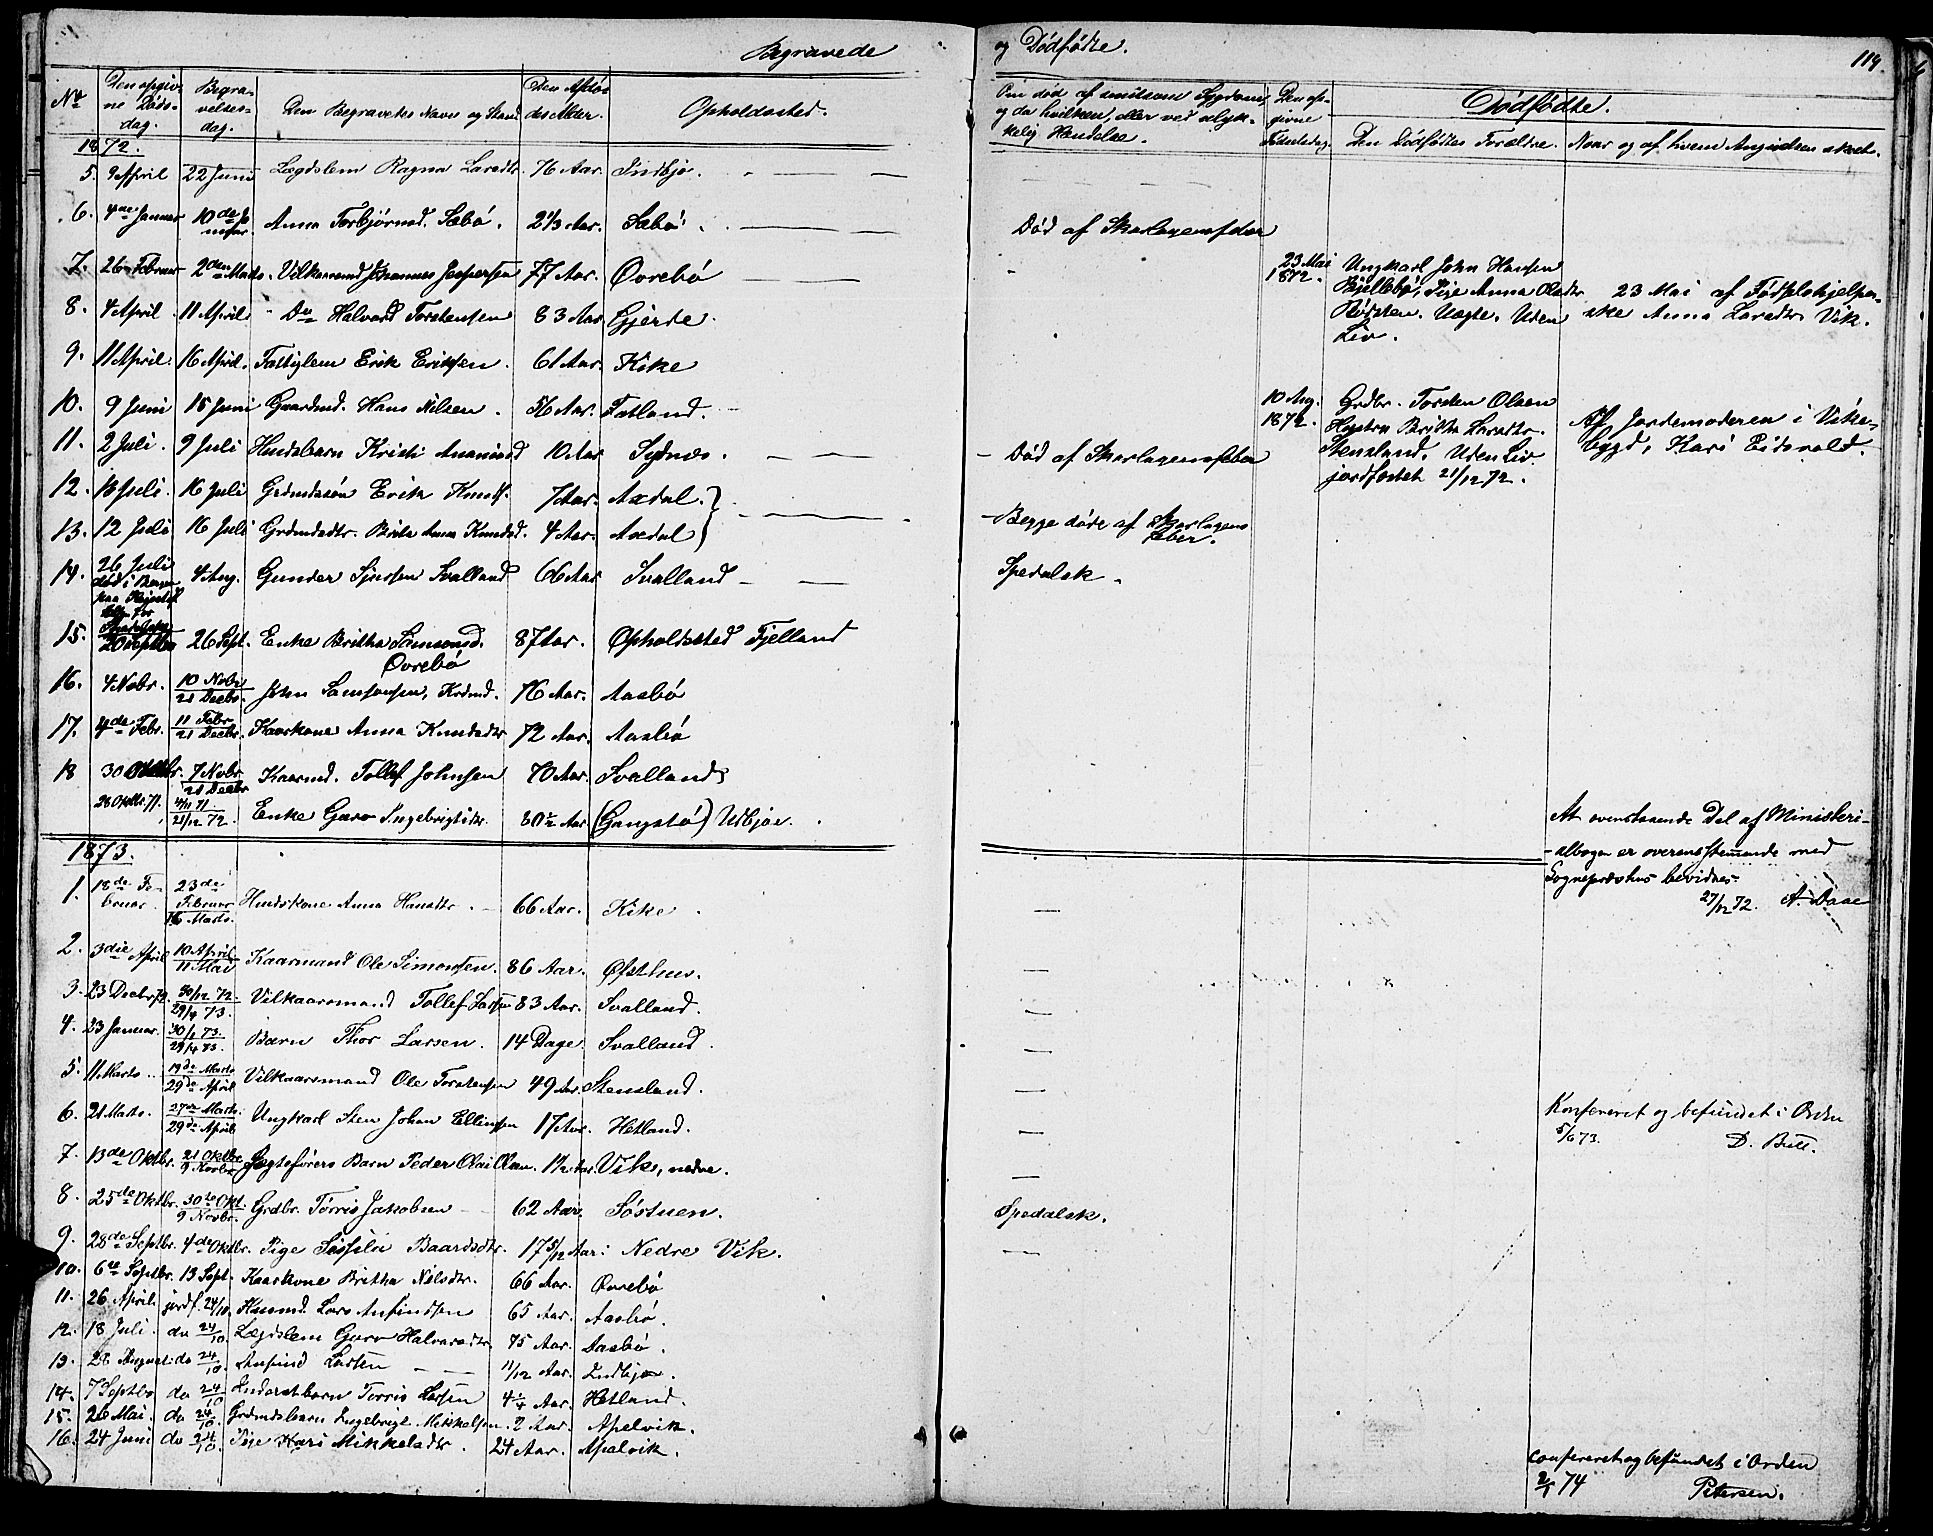 Begravede
og Dødfødte.
119.
No
Den opgiv-
ne Døds-
dag.
Begra-
velses-
dag.
Den Begravedes Navn og Stand
Den Afdø-
des Alder.
Opholdssted.
Om død af smitsom Sygdom,
og da hvilken, eller ved ulyk-
kelig Hændelse.
Den op-
givne
Fødselsdag.
Dødfødte.
Den Dødfødtes Forældre.
Naar og af hvem Anmeldelsen skeet.
1872.
5. 9 April 22 Juni Lægdslem Ragna Larsdtr. 76 Aar. Indbjo.
6. 4de Januar 10de Januar Anna Torbjørnsd. Sæbø. 2 1/3 Aar. Sæbø. Død af Skarlagensfeber
7. 26 Februar 2den Marts. Vilkaarsmd Johannes Jespersen 77 Aar. Øvrebø
23 Mai
1872.
Ungkarl John Hansen
Bjellebø, Pige Anna Olsdtr
Uægte. Uden
Liv.
23 Mai af Fødselshjelper-
ske Anna Larsdtr. Vik.
8. 4 April 11 April Do Halvard Torstensen 83 Aar Gjerde.
9. 11 April. 16 April. Fattiglem Erik Eriksen. 61 Aar. Kike
10. 9 Juni 15 Juni Gaardmd. Hans Nilsen. 56 Aar. Fatland.
10 Aug.
1872.
Grdbr. Torsten Olsen
Hustru Britha Larsdtr.
Stensland. Uden Liv.
jordfæstet 21/12 72.
Af Jordemoderen i Vike-
bygd, Kari Eidsvold.
11. 2 Juli. 9 Juli Husdsbarn Kristi Anamiasd 10 Aar Sydnes. Død af Skarlagensfeber
12. 13 Juli. 16 Juli Grdmdssøn Erik Knuds. 7 Aar. Axdal.
13. 12 Juli 16 Juli Grdmdsdtr. Brita Anna Knudsd. 4 Aar. Axdal
Begge døde af Skarlagens
feber.
14. 26 Juli
død i Bergen
paa
for
Spedalske
4 Aug. Gunder Sjursen Svalland 66 Aar Svalland Spedalsk.
15. 20 Septbr 26 Sept. Enke Britha Samsonsd.
Øvrebø
87 Aar. Opholdssted Fjelland
16. 4 Nobr. 10 Nobr
21 Decbr. John Samsonsen, Krdmd. 76 Aar. Aasbø
17. 4de Febr. 11 Febr.
21 Decbr. Kaarkone Anna Knudsdtr 72 Aar. Aasbø
18 30 Oktbr. 7 Nobr
21 Decbr Kaarmd. Tollef Johnsen 70 Aar. Svalland
28 Oktbr. 71. 4/11 71.
21/12 72. Enke Guro Ingebrigtsdtr. 80 1/2 Aar (Gangstø) Udbjoe.
At ovenstaaende Del af Ministeri-
-albogen er overensstemmende med
Sognepræstens bevidnes
27/12 72. A. Daae
1873.
1. 18de Fe-
bruar. 23de
Februar
16 Marts. Husdskone Anna Hansdtr. 66 Aar. Kike.
2. 3die April 10 April
11 Mai Kaarmand Ole Simonsen. 86 Aar. Østhus.
3. 23 Decbr. 72. 30/12 72.
29/4 73. Vilkaarsmand Tollef Larsen 83 Aar. Svalland.
4. 23 Januar. 30/1 73.
29/4 73. Barn Thor Larsen. 14 Dage. Svalland.
5. 11 Marts. 19de Marts
29de April Vilkaarsmand Ole Torstensen 49 Aar. Stensland.
6. 21 Marts. 27de Marts.
29de April Ungkarl Sten Johan Ellingsen 17 Aar. Hetland.
Konfereret og befundet i Orden
5/6 73. D. Bull.
7. 13de Oktbr. 21 Oktbr.
9 Novbr. Jagteførers Barn Peder Olai Olsen. 1 1/2 Aar. Vik, nedre.
8. 25de Oktbr. 30te Okt.
9 Novbr. Grdbr. Torris Jakobsen 62 Aar. Søstuen. Spedalsk.
9. 28de Septbr. 4de Oktbr. Pige Baardsdtr. 17 5/12 Aar. Nedre Vik.
10. 6te Septbr. 13 Sept. Kaarkone Britha Nilsdtr. 66 Aar. Øvrebø
11. 26 April. jordf. 24/10. Husmd. Lars Anfindsen 65 Aar. Aasbø.
12. 18 Juli. do 24/10. Lægdslem Guro Halvarsdtr. 75 Aar. Aasbø.
13. 28 August. do 24/10. Anfind Larsen 11/12 Aar. Indbjoe.
14. 7 Septbr do 24/10 Inderstbarn Torris Larsen 4 1/4 Aar. Hetland.
15. 26 Mai. do 24/10. Grdmdsbarn Ingebrigt Mikkelsen. 2 Aar. Apelvik.
16. 24 Juni do 24/10. Pige Kari Mikkelsdtr. 24 Aar. Apelvik.
Confereret og befundet i Orden
2/1 74 Petersen.